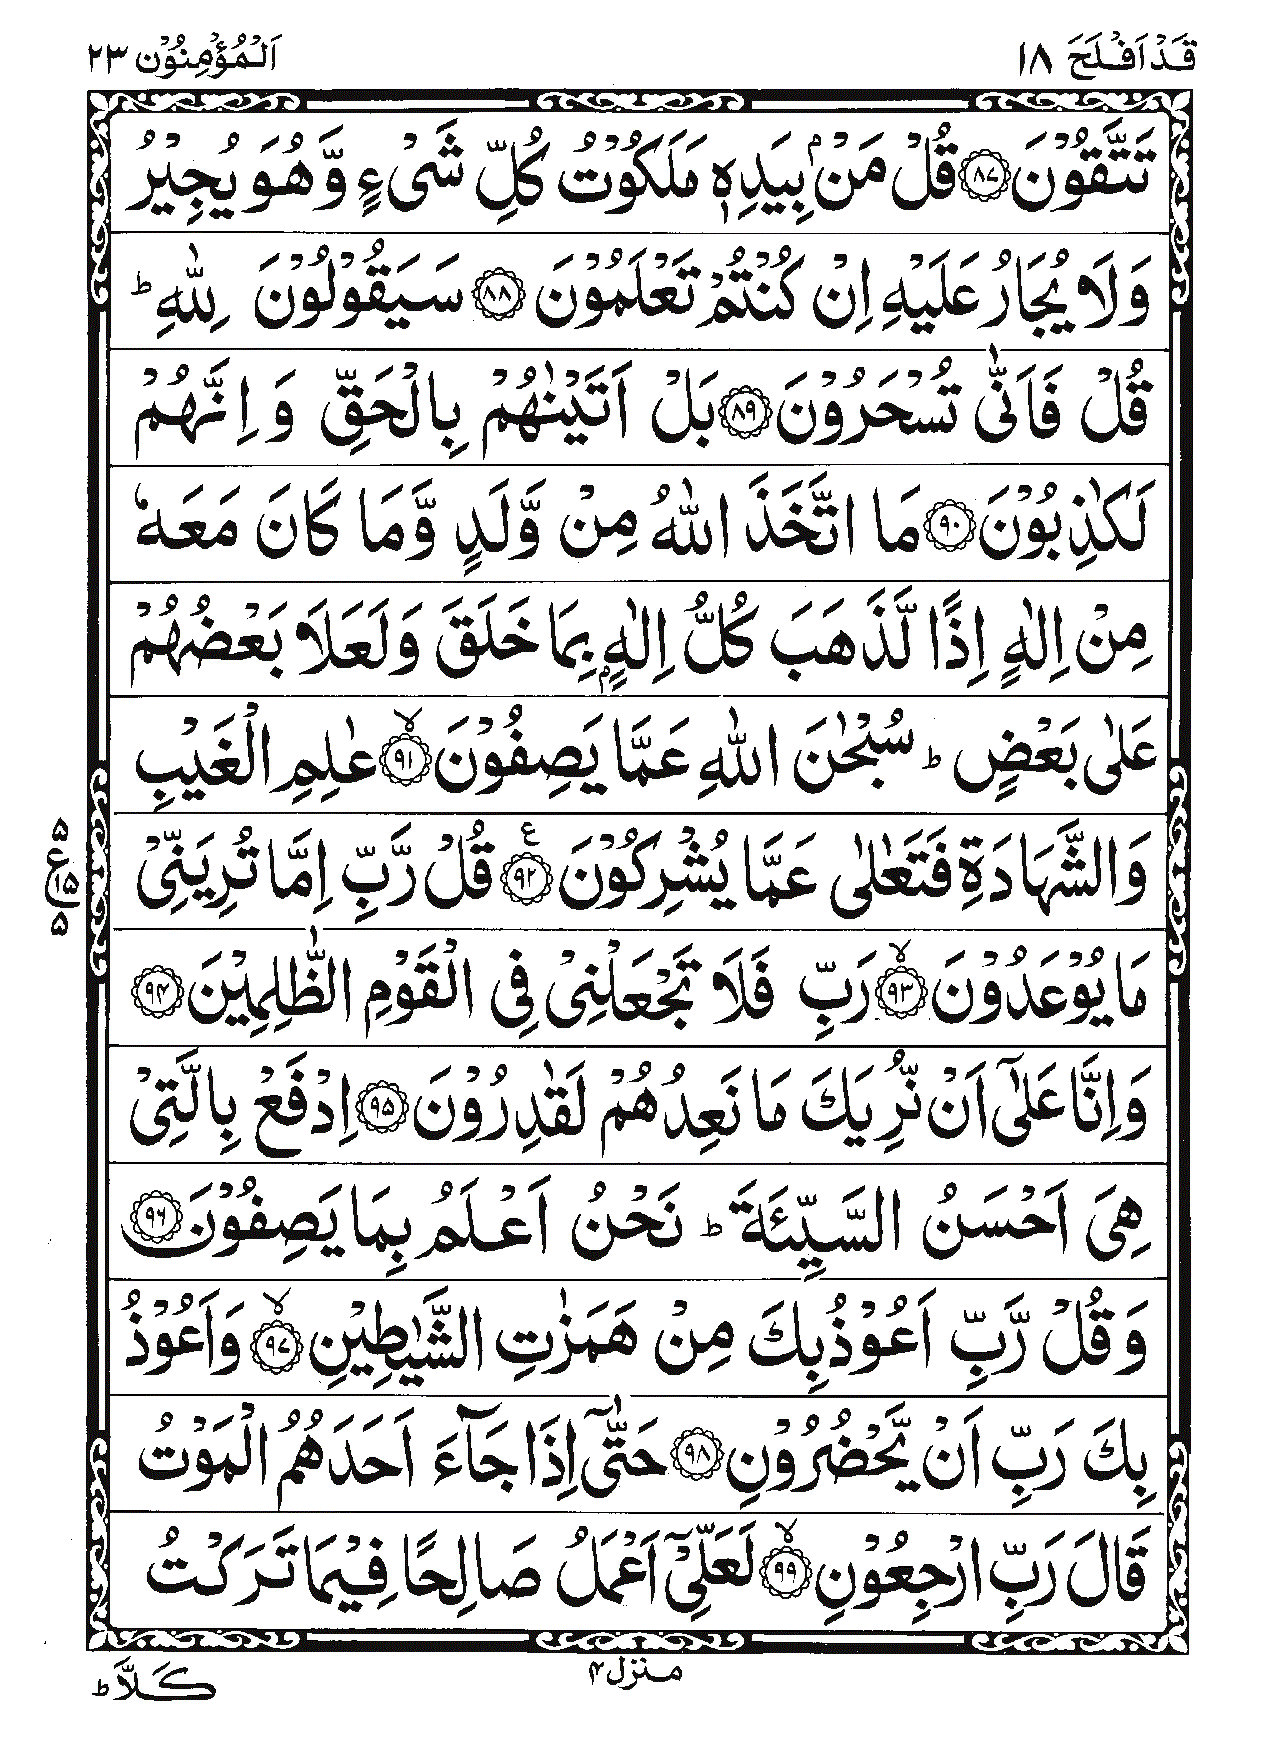 قَدْ اَفْلَحَ ١٨
اَلْمُؤْمِنُوْن ٢٣
تَتَّقُوْنَ ﴿٨٧﴾ قُلْ مَنْۢ بِيَدِهٖ مَلَكُوْتُ كُلِّ شَیْءٍ وَّهُوَ يُجِيْرُ
وَلَا يُجَارُ عَلَيْهِ اِنْ كُنْتُمْ تَعْلَمُوْنَ ﴿٨٨﴾ سَيَقُوْلُوْنَ لِلّٰهِ ؕ
قُلْ فَاَنّٰى تُسْحَرُوْنَ ﴿٨٩﴾ بَلْ اَتَيْنٰهُمْ بِالْحَقِّ وَ اِنَّهُمْ
لَكٰذِبُوْنَ ﴿٩٠﴾ مَا اتَّخَذَ اللّٰهُ مِنْ وَّلَدٍ وَّمَا كَانَ مَعَهٗ
مِنْ اِلٰهٍ اِذًا لَّذَهَبَ كُلُّ اِلٰهٍۢ بِمَا خَلَقَ وَلَعَلَا بَعْضُهُمْ
عَلٰى بَعْضٍ ؕ سُبْحٰنَ اللّٰهِ عَمَّا يَصِفُوْنَ ﴿٩١﴾ۙ عٰلِمِ الْغَيْبِ
وَالشَّهَادَةِ فَتَعٰلٰى عَمَّا يُشْرِكُوْنَ ﴿٩٢﴾ قُلْ رَّبِّ اِمَّا تُرِيَنِّیْ
ع
٥
ع
١٥
٥
مَا يُوْعَدُوْنَ ﴿٩٣﴾ۙ رَبِّ فَلَا تَجْعَلْنِیْ فِی الْقَوْمِ الظّٰلِمِيْنَ ﴿٩٤﴾
وَاِنَّا عَلٰٓى اَنْ نُّرِيَكَ مَا نَعِدُهُمْ لَقٰدِرُوْنَ ﴿٩٥﴾ اِدْفَعْ بِالَّتِیْ
هِیَ اَحْسَنُ السَّيِّئَةَ ؕ نَحْنُ اَعْلَمُ بِمَا يَصِفُوْنَ ﴿٩٦﴾
وَ قُلْ رَّبِّ اَعُوْذُ بِكَ مِنْ هَمَزٰتِ الشَّيٰطِيْنِ ﴿٩٧﴾ۙ وَاَعُوْذُ
بِكَ رَبِّ اَنْ يَّحْضُرُوْنِ ﴿٩٨﴾ حَتّٰٓى اِذَا جَآءَ اَحَدَهُمُ الْمَوْتُ
قَالَ رَبِّ ارْجِعُوْنِ ﴿٩٩﴾ۙ لَعَلِّیْٓ اَعْمَلُ صَالِحًا فِيْمَا تَرَكْتُ
منزل ٤
كَلَّا ؕ